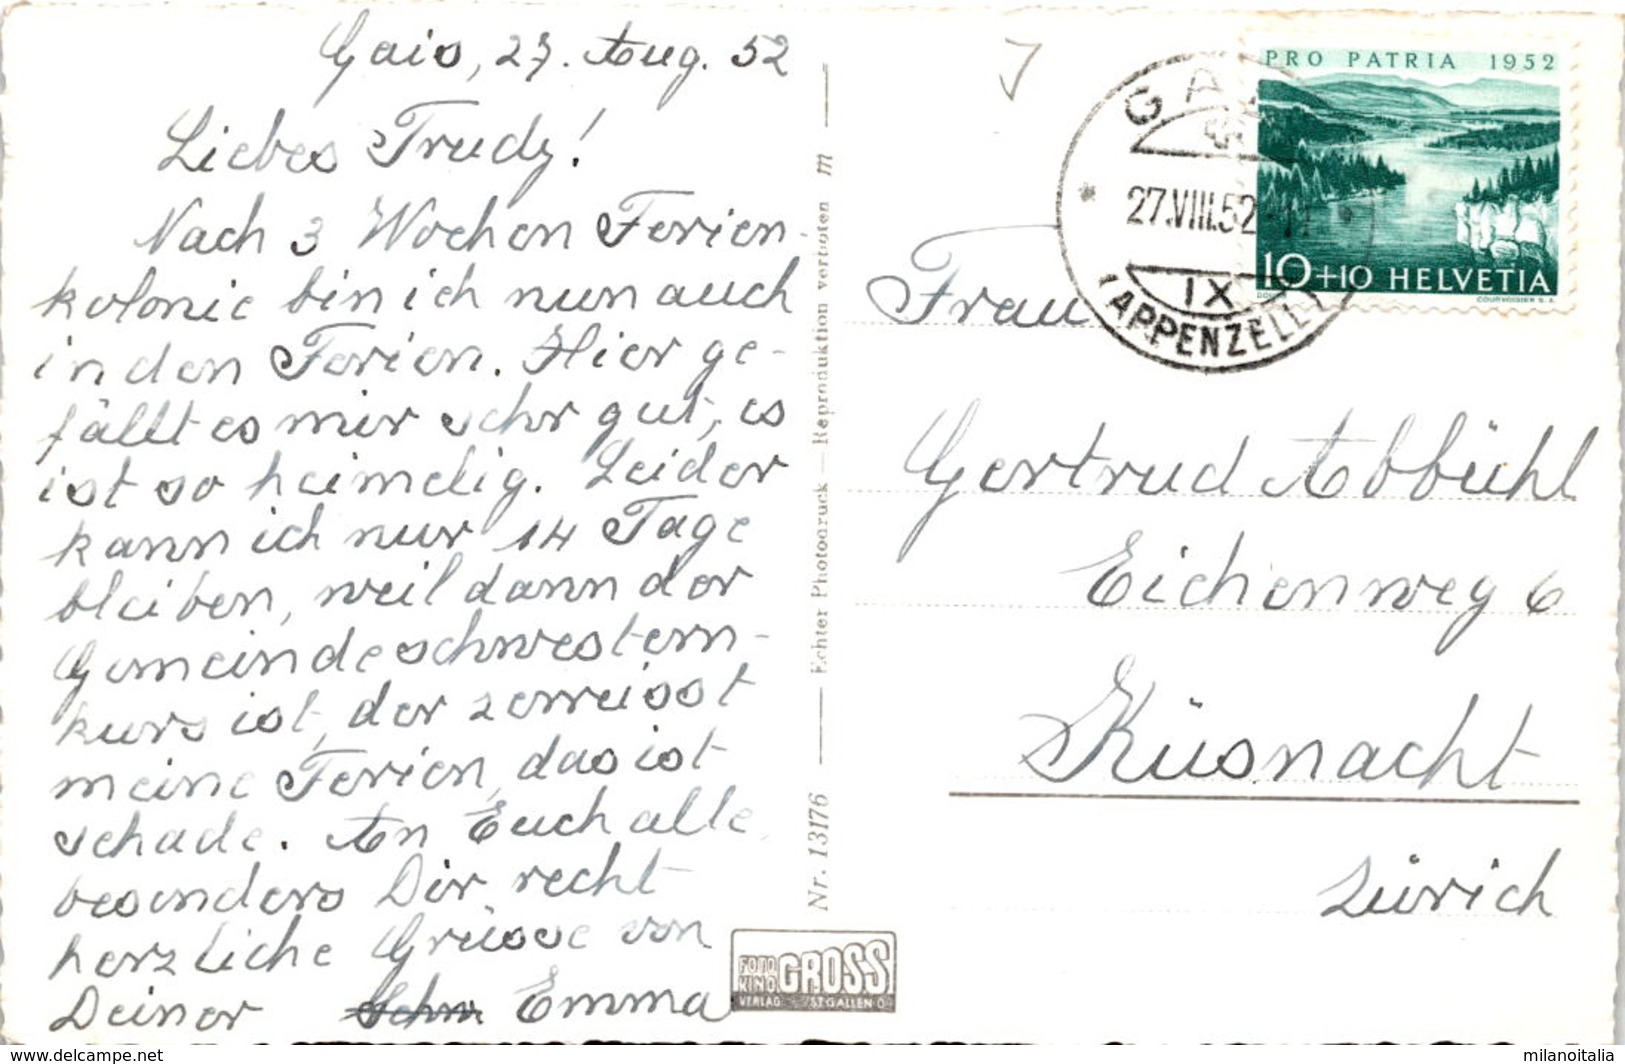 Gais, 27. Aug. 52
Liebes Trudy!
Nach 3 Wochen Ferien-
kolonie bin ich nun auch
in den Ferien. Hier ge-
fällt es mir sehr gut, es
ist so heimelig. Leider
kann ich nur 14 Tage
bleiben, weil dann der
Gemeindeschwestern-
kurs ist, der zerreisst
meine Ferien, das ist
schade. An Euch alle,
besonders Dir recht
herzliche Grüsse von
Deiner Emma
Nr. 13176 — Echter Photodruck — Reproduktion verboten m
FOTO KINO GROSS
VERLAG ST. GALLEN O
PRO PATRIA 1952
10+10 HELVETIA
COURVOISIER S.A.
GAIS
27.VIII.52
IX
(APPENZELL)
Frau
Gertrud Abbühl
Eichenweg 6
Küsnacht
Zürich
delcampe.net
milanoitalia